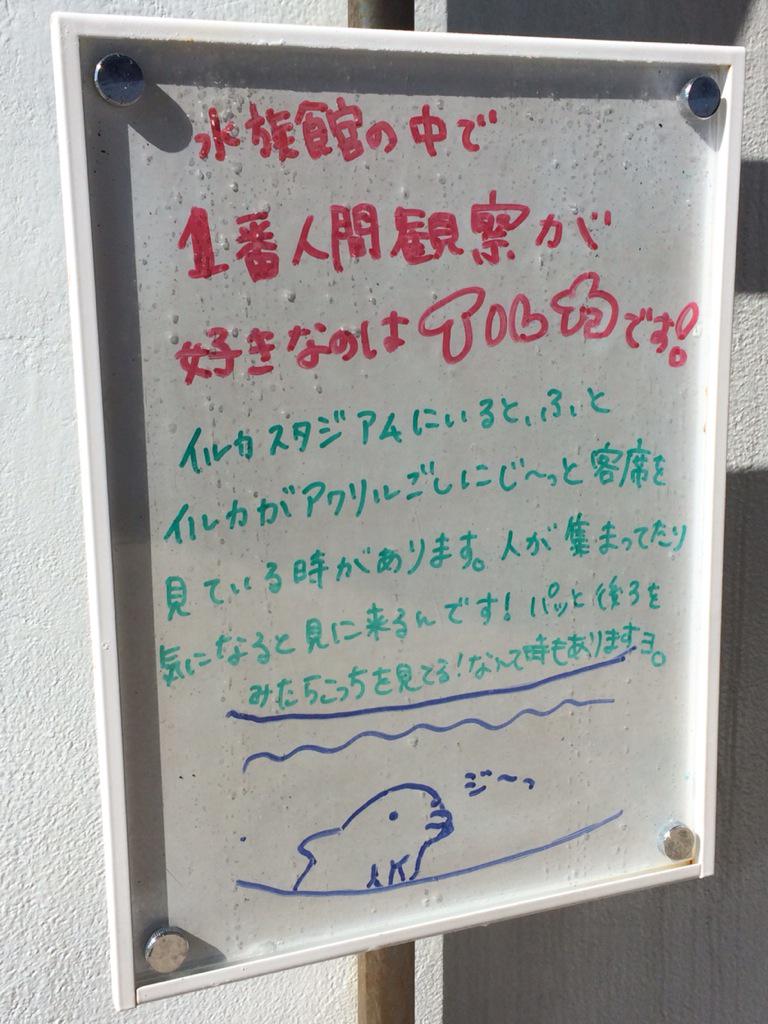 水族館の中で
1番人間観察が
好きなのはイルカです!
イルカスタジアムにいると、ふと
イルカがアクリルごしにじ〜っと客席を
見ている時があります。人が集まってたり
気になると見に来るんです!パッと後ろを
みたらこっちを見てる!なんて時もありますヨ。
ジ〜っ